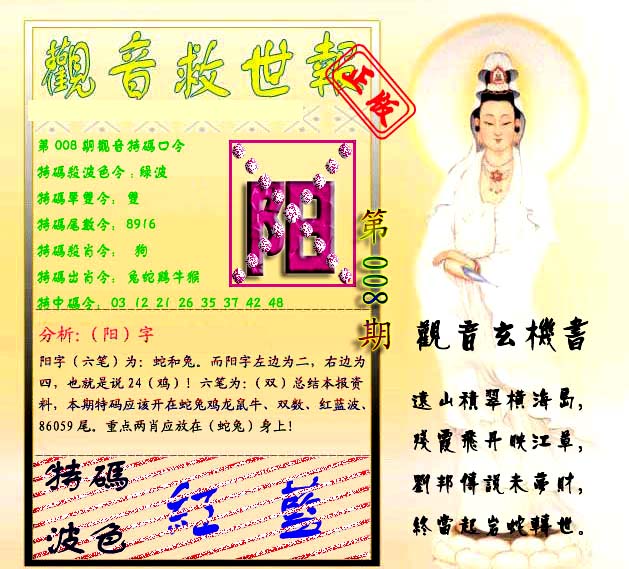 觀音救世報
正版
第008期觀音特碼口令
特碼殺波色令:綠波
特碼單雙令: 雙
特碼尾數令: 8916
特碼殺肖令: 狗
特碼出肖令: 兔蛇鷄牛猴
特中碼令: 03 12 21 26 35 37 42 48
阳
第008期
分析:（阳）字
阳字（六笔）为：蛇和兔。而阳字左边为二，右边为
四，也就是说24（鸡）！六笔为：（双）总结本报资
料，本期特码应该开在蛇兔鸡龙鼠牛、双数、红蓝波、
86059尾。重点两肖应放在（蛇兔）身上！
特碼
波色
紅 藍
觀音玄機書
遠山積翠橫海島,
殘霞飛丹映江草,
劉邦傳說未夢財,
終當起岩蛇轉世。